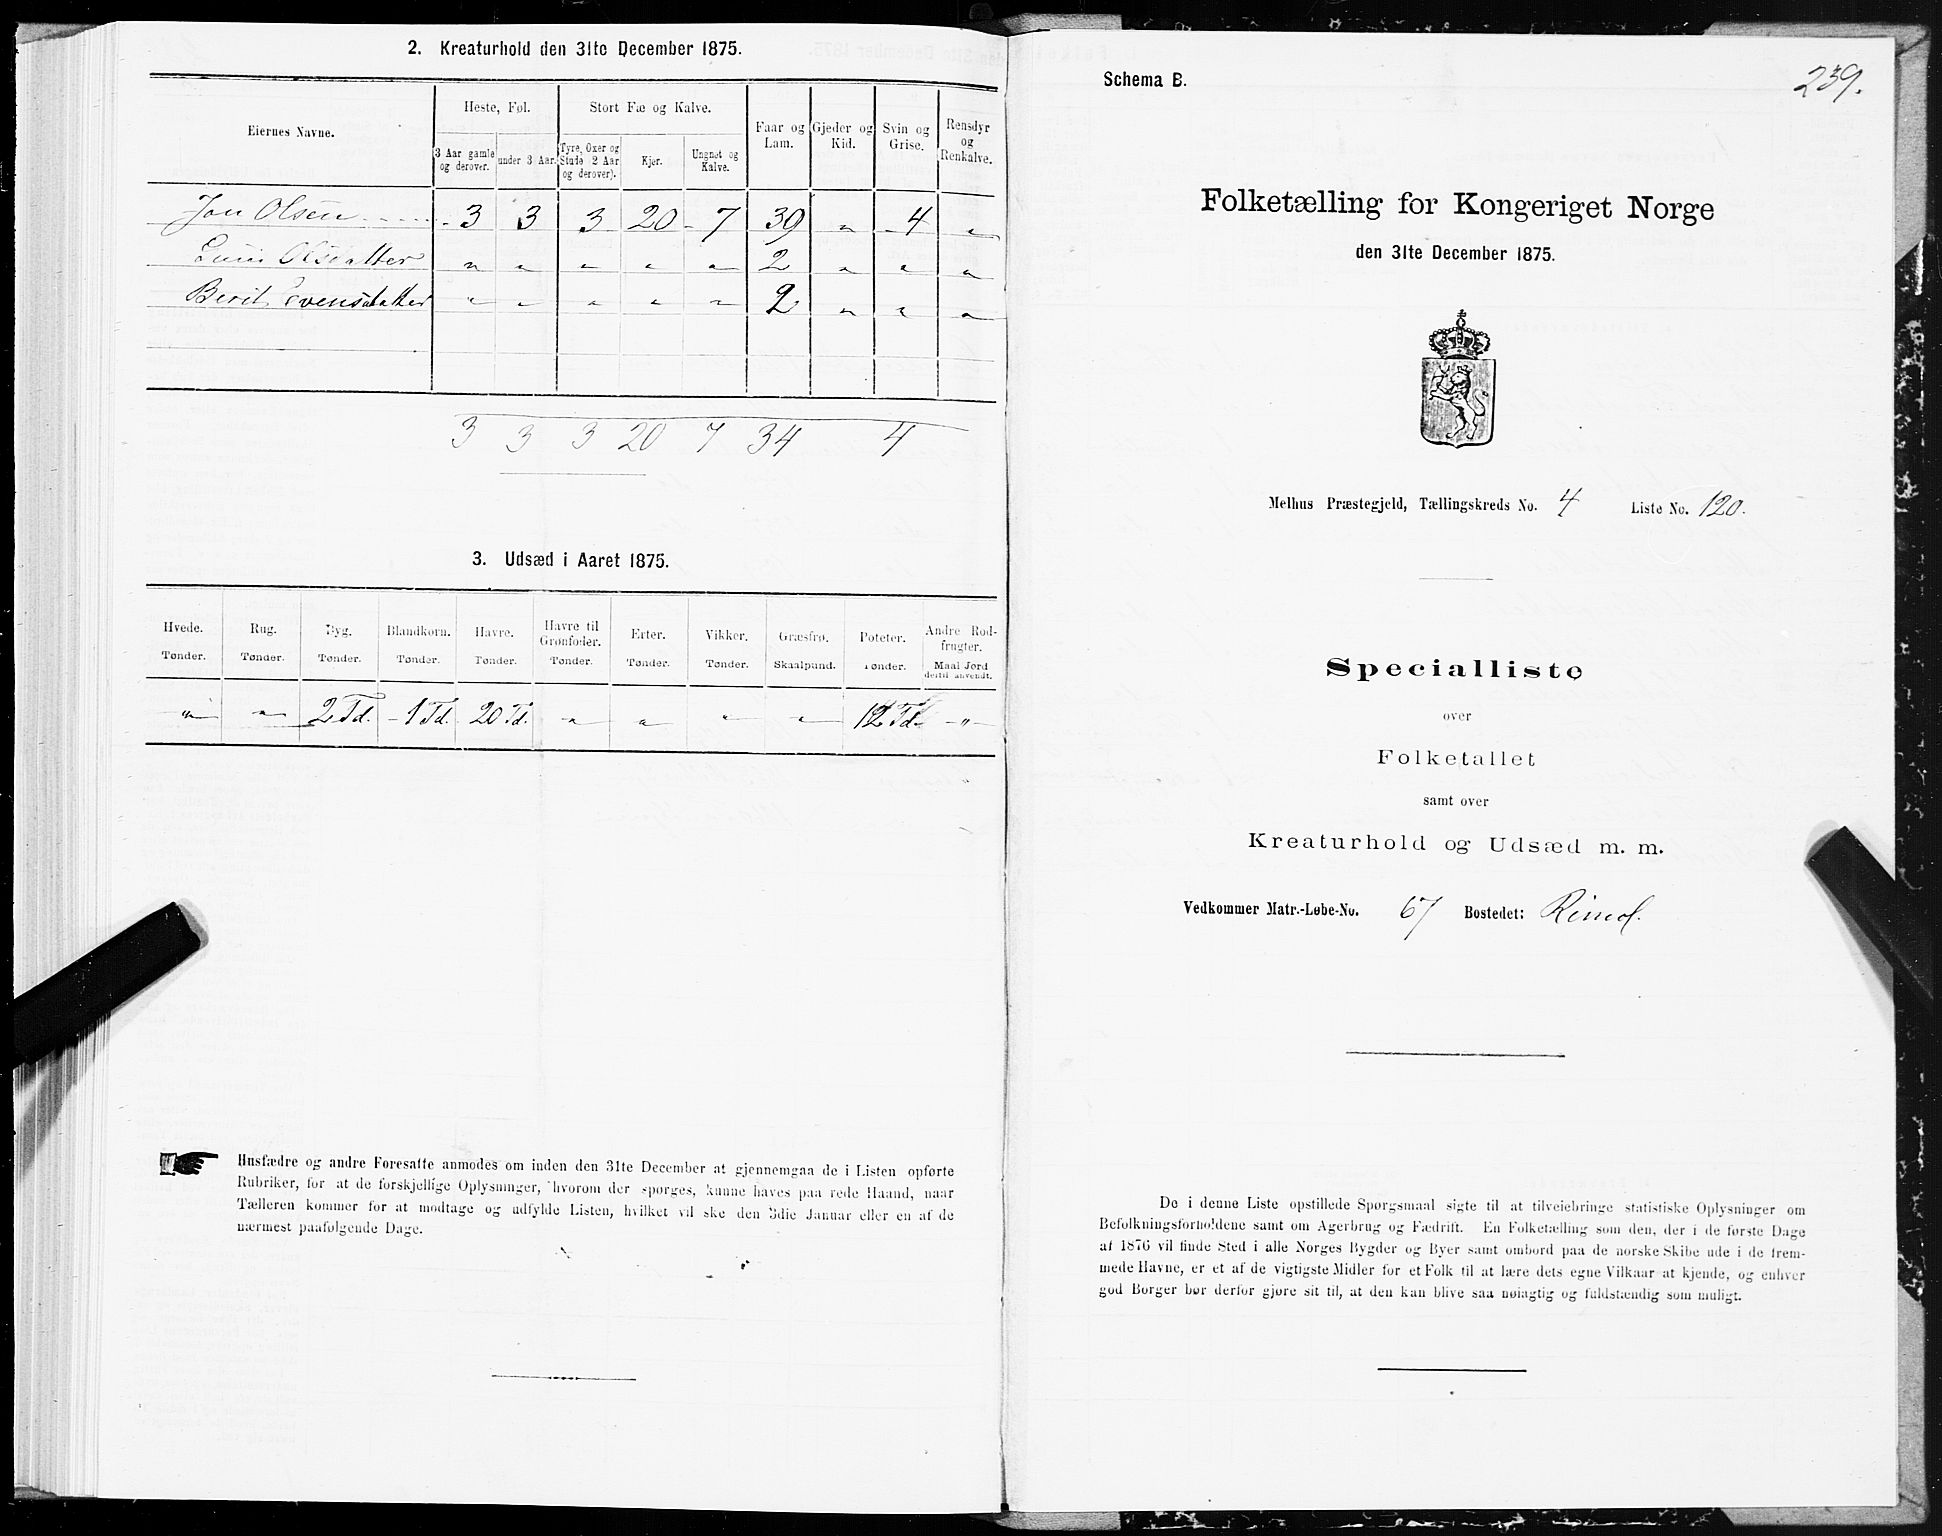 2. Kreaturhold den 31te December 1875.
Eiernes Navne.
Heste, Føl.
Stort Fæ og Kalve.
3 Aar gamle og derover.
under 3 Aar.
Tyre, Oxer og Stude (2 Aar og derover).
Kjør.
Ungnøt og Kalve.
Faar og Lam.
Gjeder og Kid.
Svin og Grise.
Rensdyr og Renkalve.
Jon Olsen 3 3 3 20 7 39 " 4 "
Olsdatter " " " " " 2 " " "
Berit Evensdatter " " " " " 2 " " "
3 3 3 20 7 34 4
3. Udsæd i Aaret 1875.
Hvede. Rug. Byg. Blandkorn. Havre. Havre til Grønfoder. Erter. Vikker. Græsfrø. Poteter. Andre Rodfrugter.
Tønder. Tønder. Tønder. Tønder. Tønder. Tønder. Tønder. Tønder. Skaalpund. Tønder. Maal Jord dertil anvendt.
" " 2 Td. 1 Td. 20 Td. " " " " 12 Td. "
Husfædre og andre Foresatte anmodes om inden den 31te December at gjennemgaa de i Listen opførte
Rubriker, for at de forskjellige Oplysninger, hvorom der spørges, kunne haves paa rede Haand, naar
Tælleren kommer for at modtage og udfylde Listen, hvilket vil ske den 3die Januar eller en af de
nærmest paafølgende Dage.
Schema B.
239.
Folketælling for Kongeriget Norge
den 31te December 1875.
Melhus Præstegjeld, Tællingskreds No. 4 Liste No. 120.
Specialliste
over
Folketallet
samt over
Kreaturhold og Udsæd m. m.
Vedkommer Matr.-Løbe-No. 67 Bostedet: Rimol.
De i denne Liste opstillede Spørgsmaal sigte til at tilveiebringe statistiske Oplysninger om
Befolkningsforholdene samt om Agerbrug og Fædrift. En Folketælling som den, der i de første Dage
af 1876 vil finde Sted i alle Norges Bygder og Byer samt ombord paa de norske Skibe ude i de frem-
mede Havne, er et af de vigtigste Midler for et Folk til at lære dets egne Vilkaar at kjende, og enhver
god Borger bør derfor gjøre sit til, at den kan blive saa nøiagtig og fuldstændig som muligt.